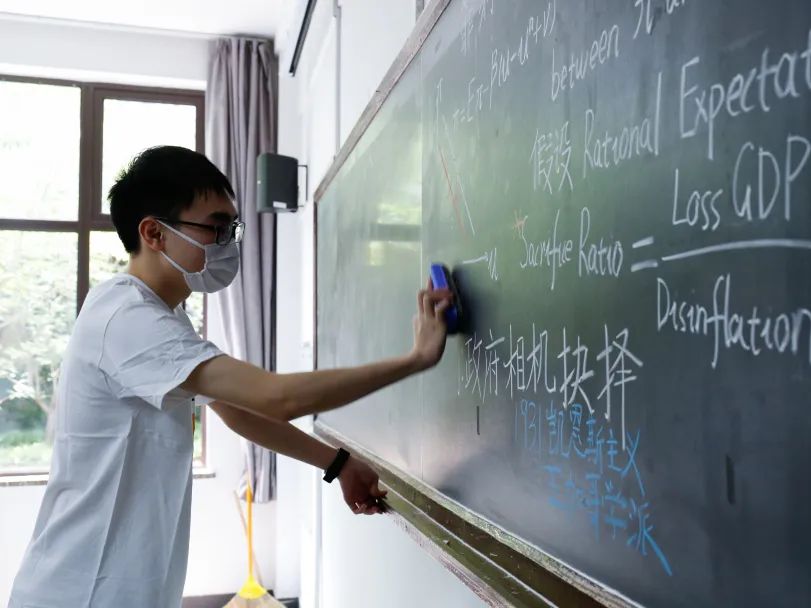 π=Eπ-β(u-uⁿ+v)
between π
假设 Rational Expectat
*Sacrifice Ratio = Loss GDP
Disinflation
u
政府相机抉择
1931 凯恩斯主义
芝加哥学派